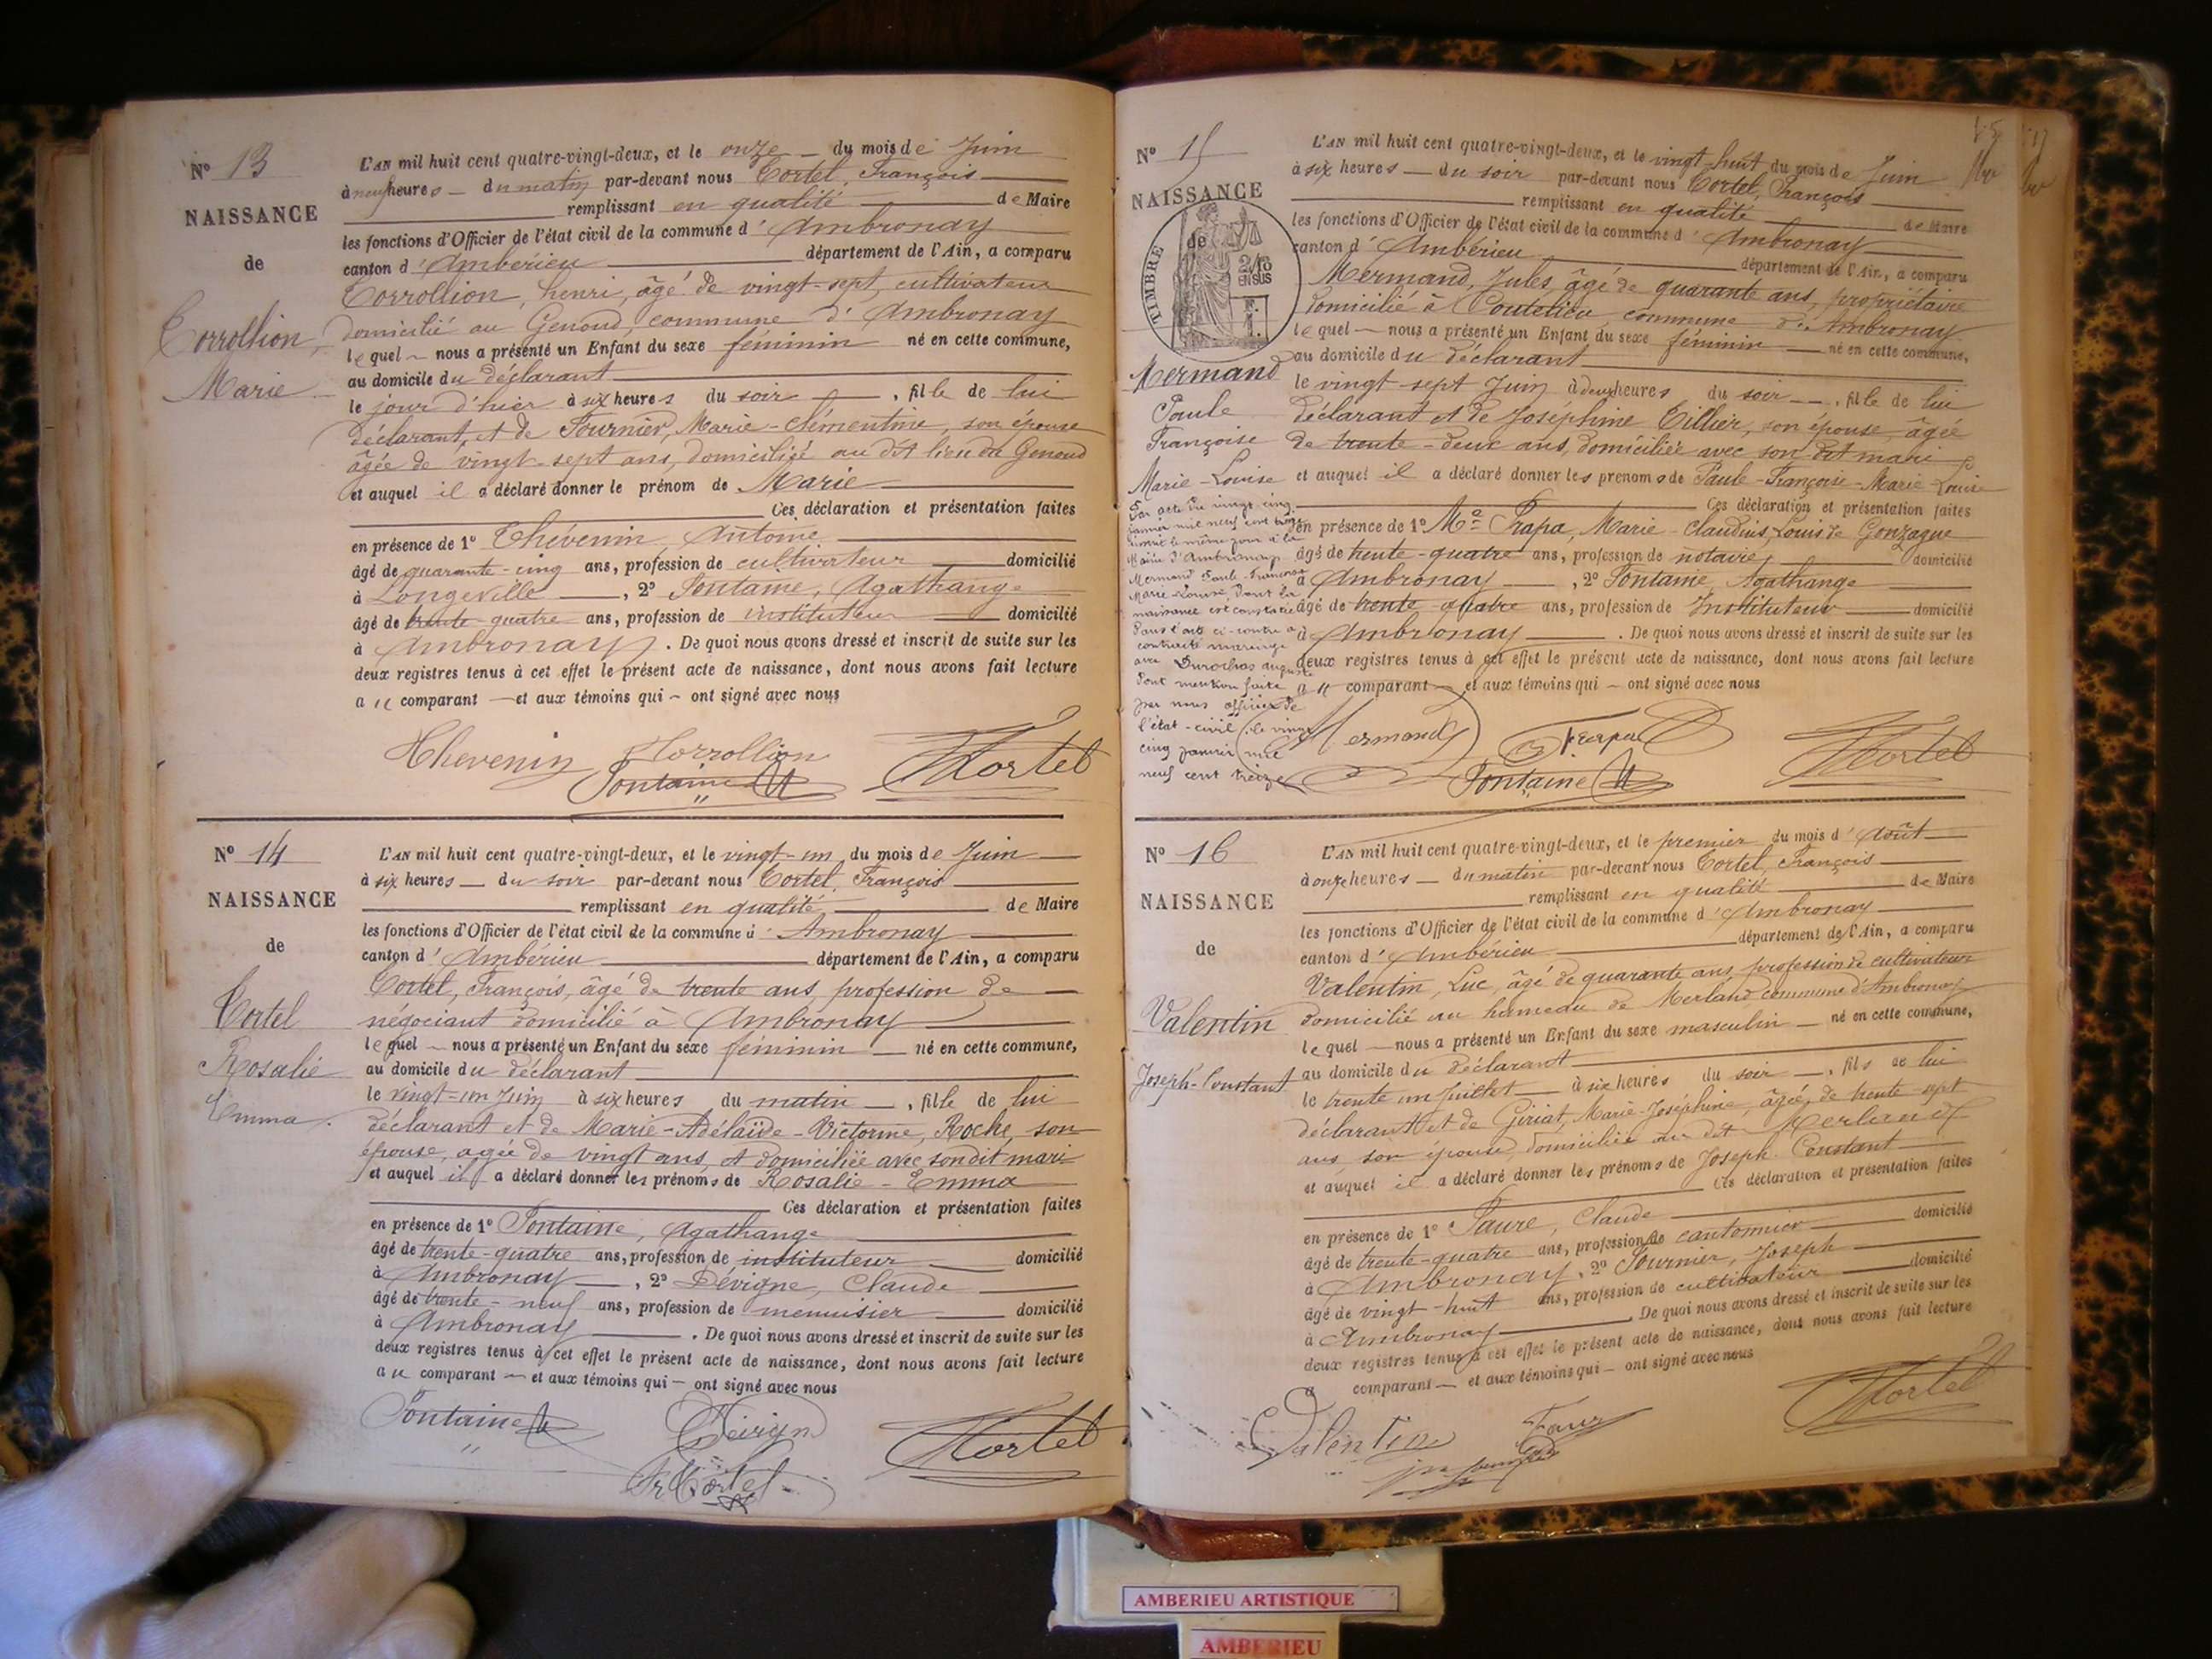 N° 13
NAISSANCE
de
Corrollion,
Marie
L'AN mil huit cent quatre-vingt-deux, et le onze du mois de Juin
à neuf heures du matin par-devant nous Cortel, François
remplissant en qualité de Maire
les fonctions d'Officier de l'état civil de la commune d'Ambronay
canton d'Ambérieu département de l'Ain, a comparu
Corrollion, henri, âgé de vingt-sept, cultivateur
domicilié au Genoud, commune d'Ambronay
lequel nous a présenté un Enfant du sexe féminin né en cette commune,
au domicile du déclarant
le jour d'hier à six heures du soir, fille de lui
déclarant, et de Fournier, Marie-Clémentine, son épouse
âgée de vingt-sept ans, domiciliée au dit lieu du Genoud
et auquel il a déclaré donner le prénom de Marie
Ces déclaration et présentation faites
en présence de 1° Thévenin, Antoine
âgé de quarante-cinq ans, profession de cultivateur domicilié
à Longeville, 2° Fontaine, Agathange
âgé de trente-quatre ans, profession de instituteur domicilié
à Ambronay. De quoi nous avons dressé et inscrit de suite sur les
deux registres tenus à cet effet le présent acte de naissance, dont nous avons fait lecture
au comparant et aux témoins qui ont signé avec nous
Thevenin Corrollion
Fontaine Cortel
N° 14
NAISSANCE
de
Cortel
Rosalie
Emma.
L'AN mil huit cent quatre-vingt-deux, et le vingt-un du mois de Juin
à six heures du soir par-devant nous Cortel, François
remplissant en qualité de Maire
les fonctions d'Officier de l'état civil de la commune d'Ambronay
canton d'Ambérieu département de l'Ain, a comparu
Cortel, François, âgé de trente ans, profession de
négociant domicilié à Ambronay
lequel nous a présenté un Enfant du sexe féminin né en cette commune,
au domicile du déclarant
le vingt-un Juin à six heures du matin, fille de lui
déclarant et de Marie-Adélaïde-Victorine, Roche, son
épouse, agée de vingt ans, et domiciliée avec son dit mari
et auquel il a déclaré donner les prénoms de Rosalie-Emma
Ces déclaration et présentation faites
en présence de 1° Fontaine, Agathange
âgé de trente-quatre ans, profession de instituteur domicilié
à Ambronay, 2° Devigne, Claude
âgé de trente-neuf ans, profession de menuisier domicilié
à Ambronay. De quoi nous avons dressé et inscrit de suite sur les
deux registres tenus à cet effet le présent acte de naissance, dont nous avons fait lecture
au comparant et aux témoins qui ont signé avec nous
Fontaine Cortel
Fr Cortel
N° 15
NAISSANCE
de
TIMBRE
2/10
EN SUS
Mermand
Paule
Françoise
Marie-Louise
Par acte du vingt-cinq
janvier mil neuf cent treize
dressé le même jour à la
Mairie d'Ambronay
Mermand Paule-Françoise
Marie-Louise, dont la
naissance est constatée
dans l'acte ci-contre a
contracté mariage
avec Durochas auguste
Dont mention faite
par nous officier de
l'état-civil le vingt
cinq janvier mil
neuf cent treize
L'AN mil huit cent quatre-vingt-deux, et le vingt-huit du mois de Juin
à six heures du soir par-devant nous Cortel, François
remplissant en qualité de Maire
les fonctions d'Officier de l'état civil de la commune d'Ambronay
canton d'Ambérieu département de l'Ain, a comparu
Mermand, Jules, âgé de quarante ans, propriétaire
domicilié à Coutelieu commune d'Ambronay
lequel nous a présenté un Enfant du sexe féminin né en cette commune,
au domicile du déclarant
le vingt-sept Juin à deux heures du soir, fille de lui
déclarant et de Joséphine Tillier, son épouse, âgée
de trente-deux ans, domiciliée avec son dit mari
et auquel il a déclaré donner les prénoms de Paule-Françoise-Marie-Louise
Ces déclaration et présentation faites
en présence de 1° Me Frapa, Marie-Claudius, Louis de Gonzague
âgé de trente-quatre ans, profession de notaire domicilié
à Ambronay, 2° Fontaine, Agathange
âgé de trente-quatre ans, profession de Instituteur domicilié
à Ambronay. De quoi nous avons dressé et inscrit de suite sur les
deux registres tenus à cet effet le présent acte de naissance, dont nous avons fait lecture
au comparant et aux témoins qui ont signé avec nous
Mermand Frapa
Fontaine Cortel
N° 16
NAISSANCE
de
Valentin
Joseph-Constant
L'AN mil huit cent quatre-vingt-deux, et le premier du mois d'Août
à onze heures du matin par-devant nous Cortel, François
remplissant en qualité de Maire
les fonctions d'Officier de l'état civil de la commune d'Ambronay
canton d'Ambérieu département de l'Ain, a comparu
Valentin, Luc, âgé de quarante ans, profession de cultivateur
domicilié au hameau de Merland commune d'Ambronay
lequel nous a présenté un Enfant du sexe masculin né en cette commune,
au domicile du déclarant
le trente un Juillet à six heures du soir, fils de lui
déclarant et de Giriat, Marie-Joséphine, âgée de trente-sept
ans, son épouse, domiciliée au dit Merland
et auquel il a déclaré donner les prénoms de Joseph-Constant
Ces déclaration et présentation faites
en présence de 1° Faure, Claude domicilié
âgé de trente-quatre ans, profession de cantonnier
à Ambronay, 2° Fournier, Joseph domicilié
âgé de vingt-huit ans, profession de cultivateur
à Ambronay. De quoi nous avons dressé et inscrit de suite sur les
deux registres tenus à cet effet le présent acte de naissance, dont nous avons fait lecture
a comparant et aux témoins qui ont signé avec nous
Valentin Faure Cortel
AMBERIEU ARTISTIQUE
AMBERIEU